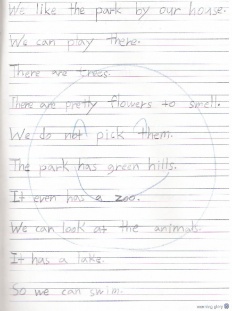 We like the park by our house.
We can play there.
There are trees.
There are pretty flowers to smell.
We do not pick them.
The park has green hills.
It even has a zoo.
We can look at the animals.
It has a lake.
So we can swim.